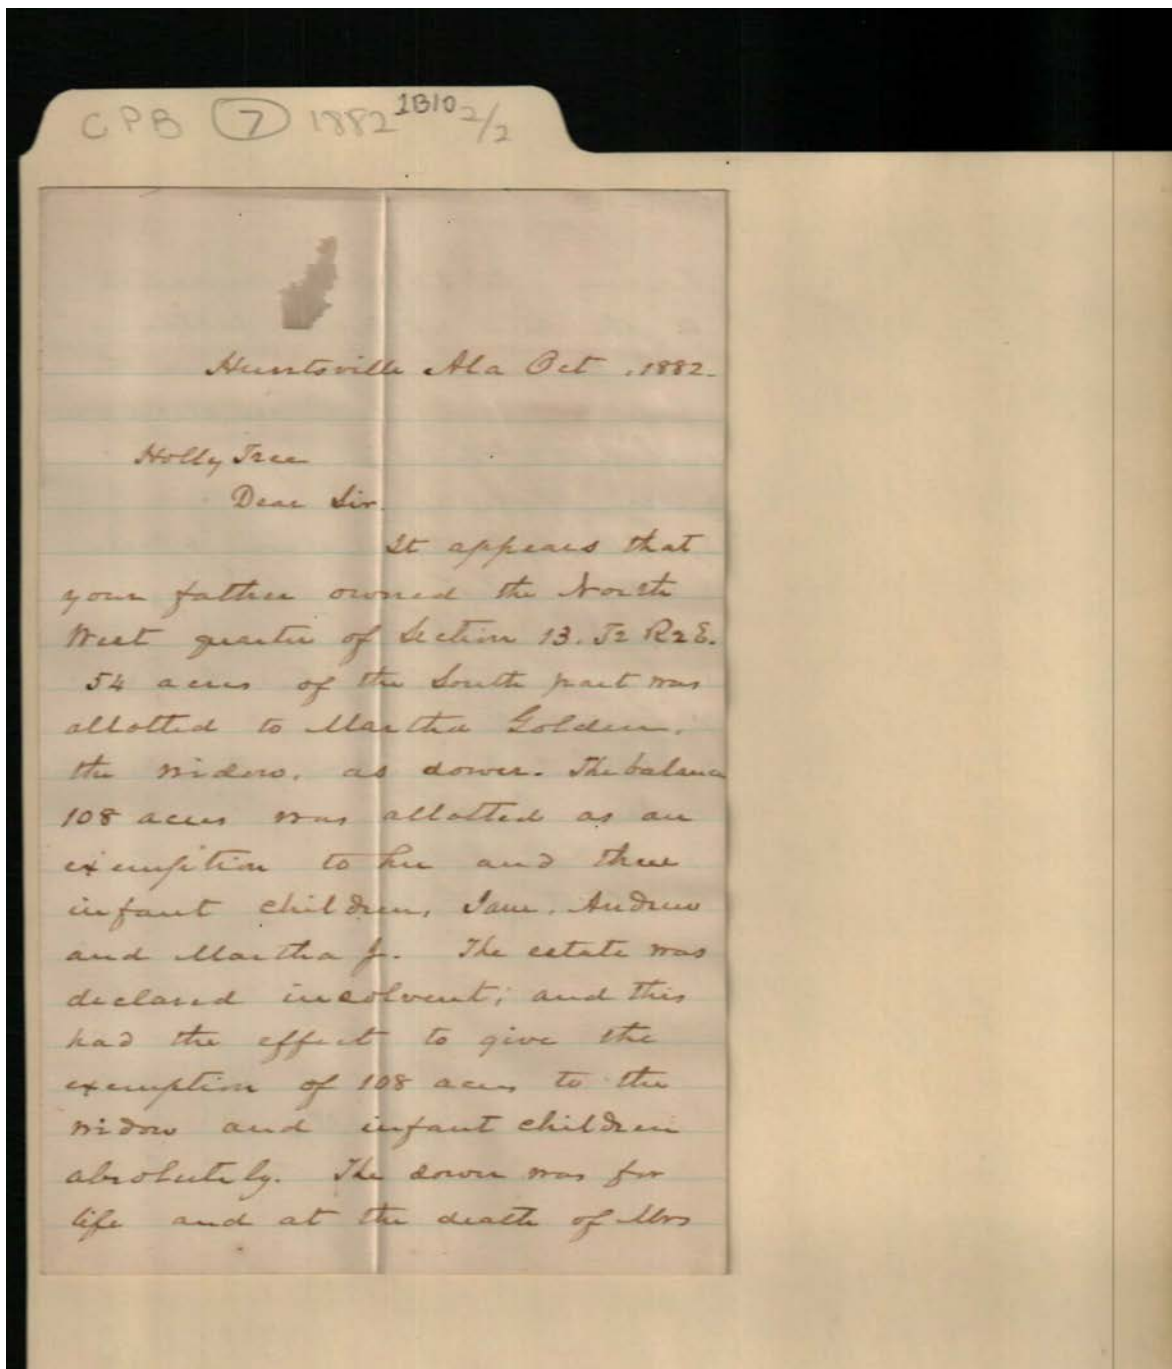 CPB 7 1882 1B10 2/2
Huntsville Ala Oct . 1882.
Holly Tree
Dear Sir.
It appears that
your father owned the North
West quarter of Section 13. T2 R2 E.
54 acres of the South part was
allotted to Martha Golden,
the widow, as dower. The balance
108 acres was allotted as an
exemption to her and three
infant children, Jane, Andrew
and Martha J. The estate was
declared insolvent; and this
had the effect to give the
exemption of 108 acres to the
widow and infant children
absolutely. The dower was for
life and at the death of Mrs